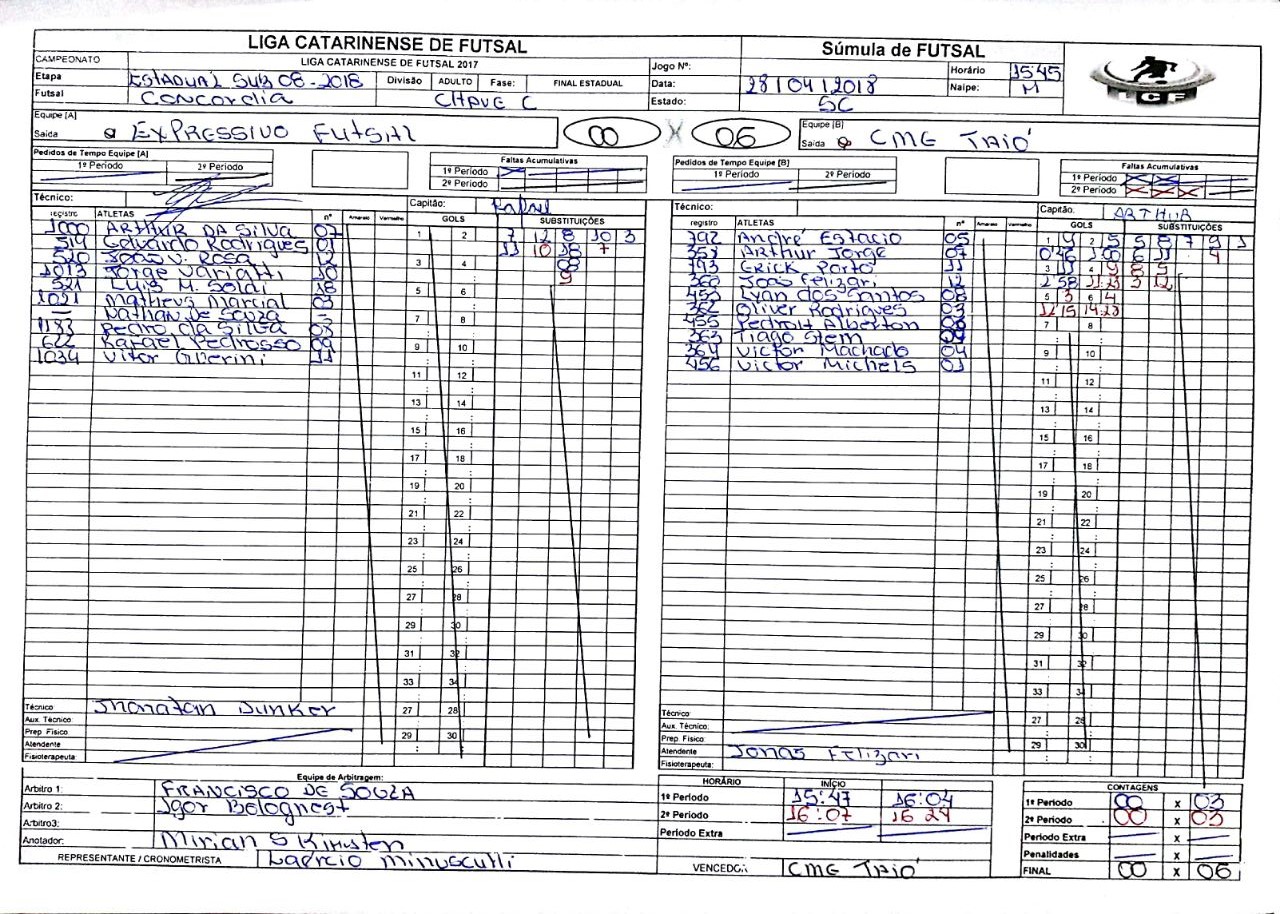 LIGA CATARINENSE DE FUTSAL
Súmula de FUTSAL
CAMPEONATO LIGA CATARINENSE DE FUTSAL 2017
Jogo Nº:
Horário 15:45
Etapa ESTADUAL SUB 08-2018 Divisão ADULTO Fase: FINAL ESTADUAL
Data: 28/04/2018
Naipe: M
Futsal Concordia CHAVE C
Estado: SC
LCF
Equipe [A]
Saída EXPRESSIVO FUTSAL 00 X 06
Equipe [B]
Saída CME TAIÓ
Pedidos de Tempo Equipe [A]
1º Periodo 2º Periodo
Faltas Acumulativas
1º Periodo
2º Periodo
Pedidos de Tempo Equipe [B]
1º Periodo 2º Periodo
Faltas Acumulativas
1º Periodo
2º Periodo
Técnico: Capitão: Rafael
registro ATLETAS nº Amarelo Vermelho GOLS SUBSTITUIÇÕES
1000 ARTHUR DA SILVA 07 1 2 7 12 8 10 3
519 Eduardo Rodrigues 01 11 10 18 7
520 João V. Rosa 12 3 4 08
1013 Jorge Variatti 10 9
521 Luis M. Soldi 18 5 6
1021 Matheus Marcial 03
— Nathan De Souza — 7 8
1183 Pedro da Silva 08
622 Rafael Pedrosso 09 9 10
1034 Vitor Guerini 11
11 12
13 14
15 16
17 18
19 20
21 22
23 24
25 26
27 28
29 30
31 32
33 34
Técnico Jhonatan Dunker 27 28
Aux. Técnico
Prep. Físico
Atendente 29 30
Fisioterapeuta:
Técnico: Capitão: ARTHUR
registro ATLETAS nº Amarelo Vermelho GOLS SUBSTITUIÇÕES
392 André Estacio 05 1 4 2 5 5 8 7 9 1
351 Arthur Jorge 07 0'46 1:00 6 11 4
793 Erick Porto 11 3 11 4 9 8 5
360 João Felizari 12 2:58 11:23 3 12
453 Lvan dos Santos 08 5 3 6 4
362 Oliver Rodrigues 03 12'15 14:28
455 Pedro Alberton 06 7 8
363 Tiago Stem 09
364 Victor Machado 04 9 10
456 Victor Michels 01
11 12
13 14
15 16
17 18
19 20
21 22
23 24
25 26
27 28
29 30
31 32
33 34
Técnico
Aux. Técnico: 27 28
Prep. Físico:
Atendente Jonas Felizari 29 30
Fisioterapeuta:
Equipe de Arbitragem:
Arbitro 1: FRANCISCO DE SOUZA
Arbitro 2: Igor Bolognest
Arbitro3:
Anotador: Mirian S Kirnsten
REPRESENTANTE / CRONOMETRISTA Laercio Minusculli
HORÁRIO INÍCIO
1º Periodo 15:47 16:04
2º Periodo 16:07 16 24
Periodo Extra
VENCEDOR: CME TAIÓ
CONTAGENS
1º Periodo 00 x 03
2º Periodo 00 x 03
Periodo Extra x
Penalidades x
FINAL 00 x 06